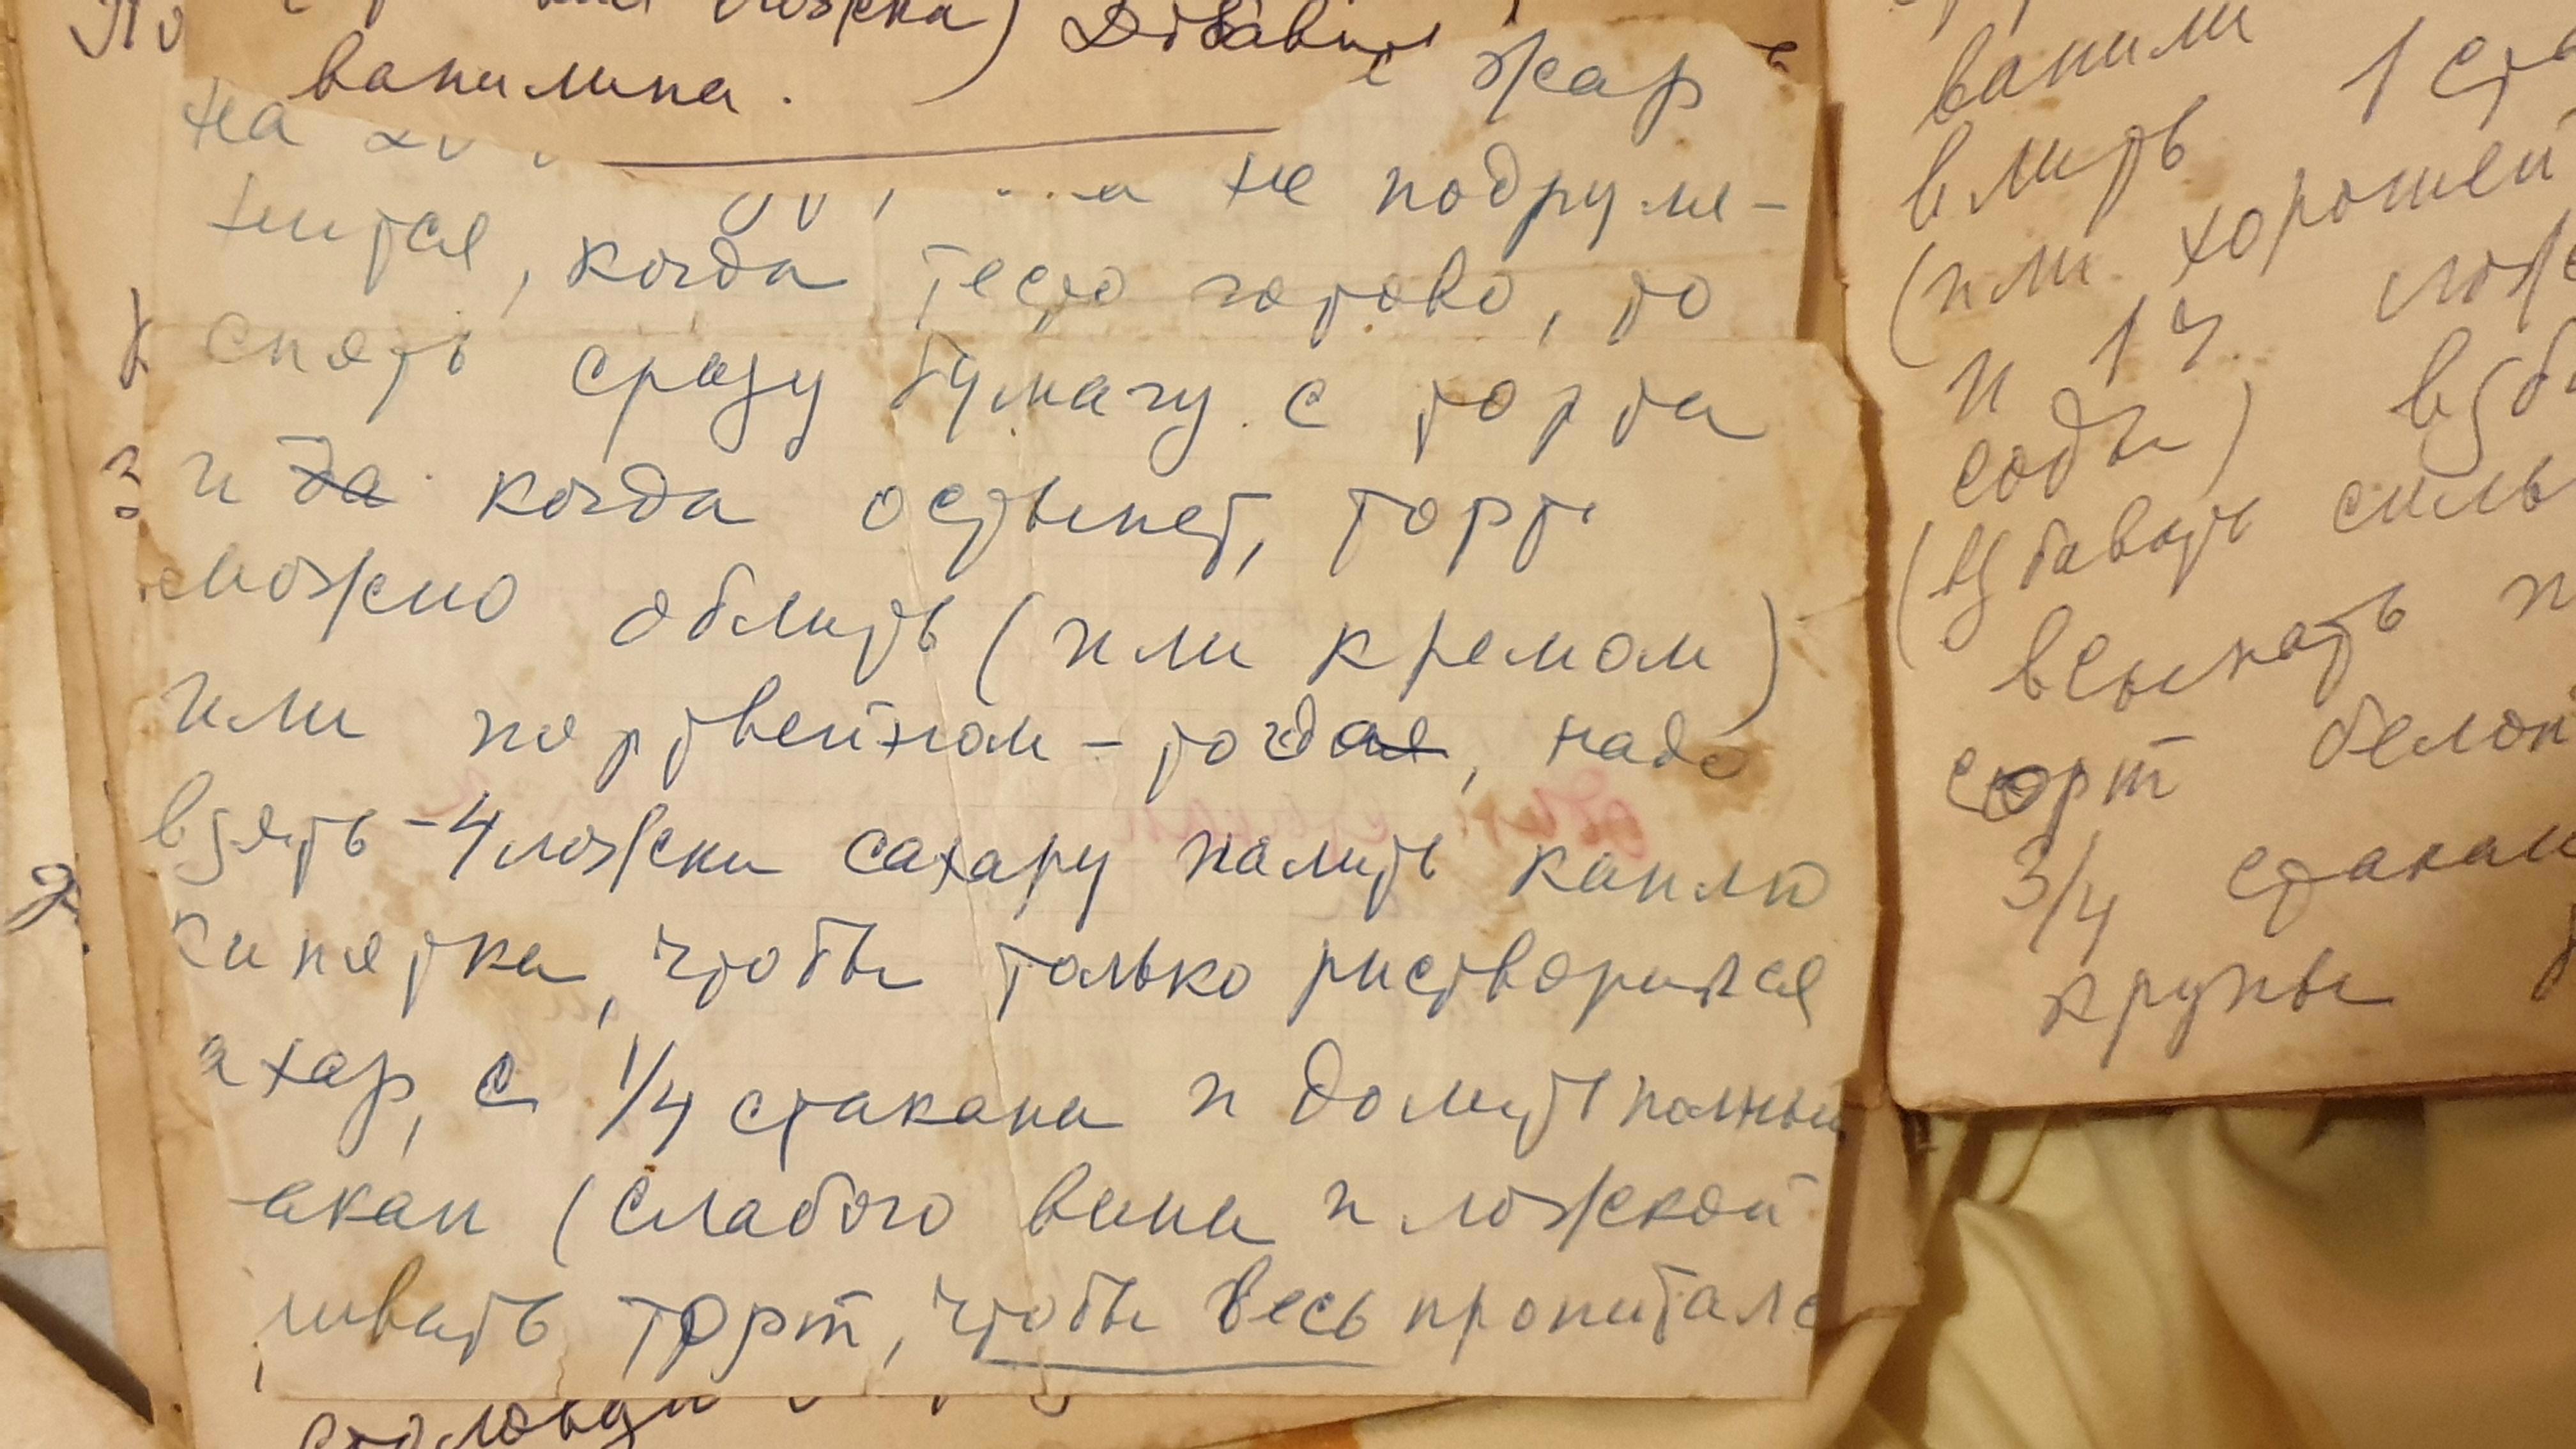 ложка) Добавить
ванилина.
жар
на
не подрумя-
нится, когда тесто готово, то
снять сразу бумагу с торта
и за когда остынет, торт
можно облить (или кремом)
или портвейном - тогда, надо
взять - 4 ложки сахару налить каплю
кипятка, чтобы только растворился
ахар, с 1/4 стакана и долить полный
акан (слабого вина и ложкой
ливать торт, чтобы весь пропитался
ванили
влить 1 ста
(или хорошей
и 1 ч. лож
соды) взби
(взбивать силь
всыпать
сорт белок
3/4 стакан
крупы